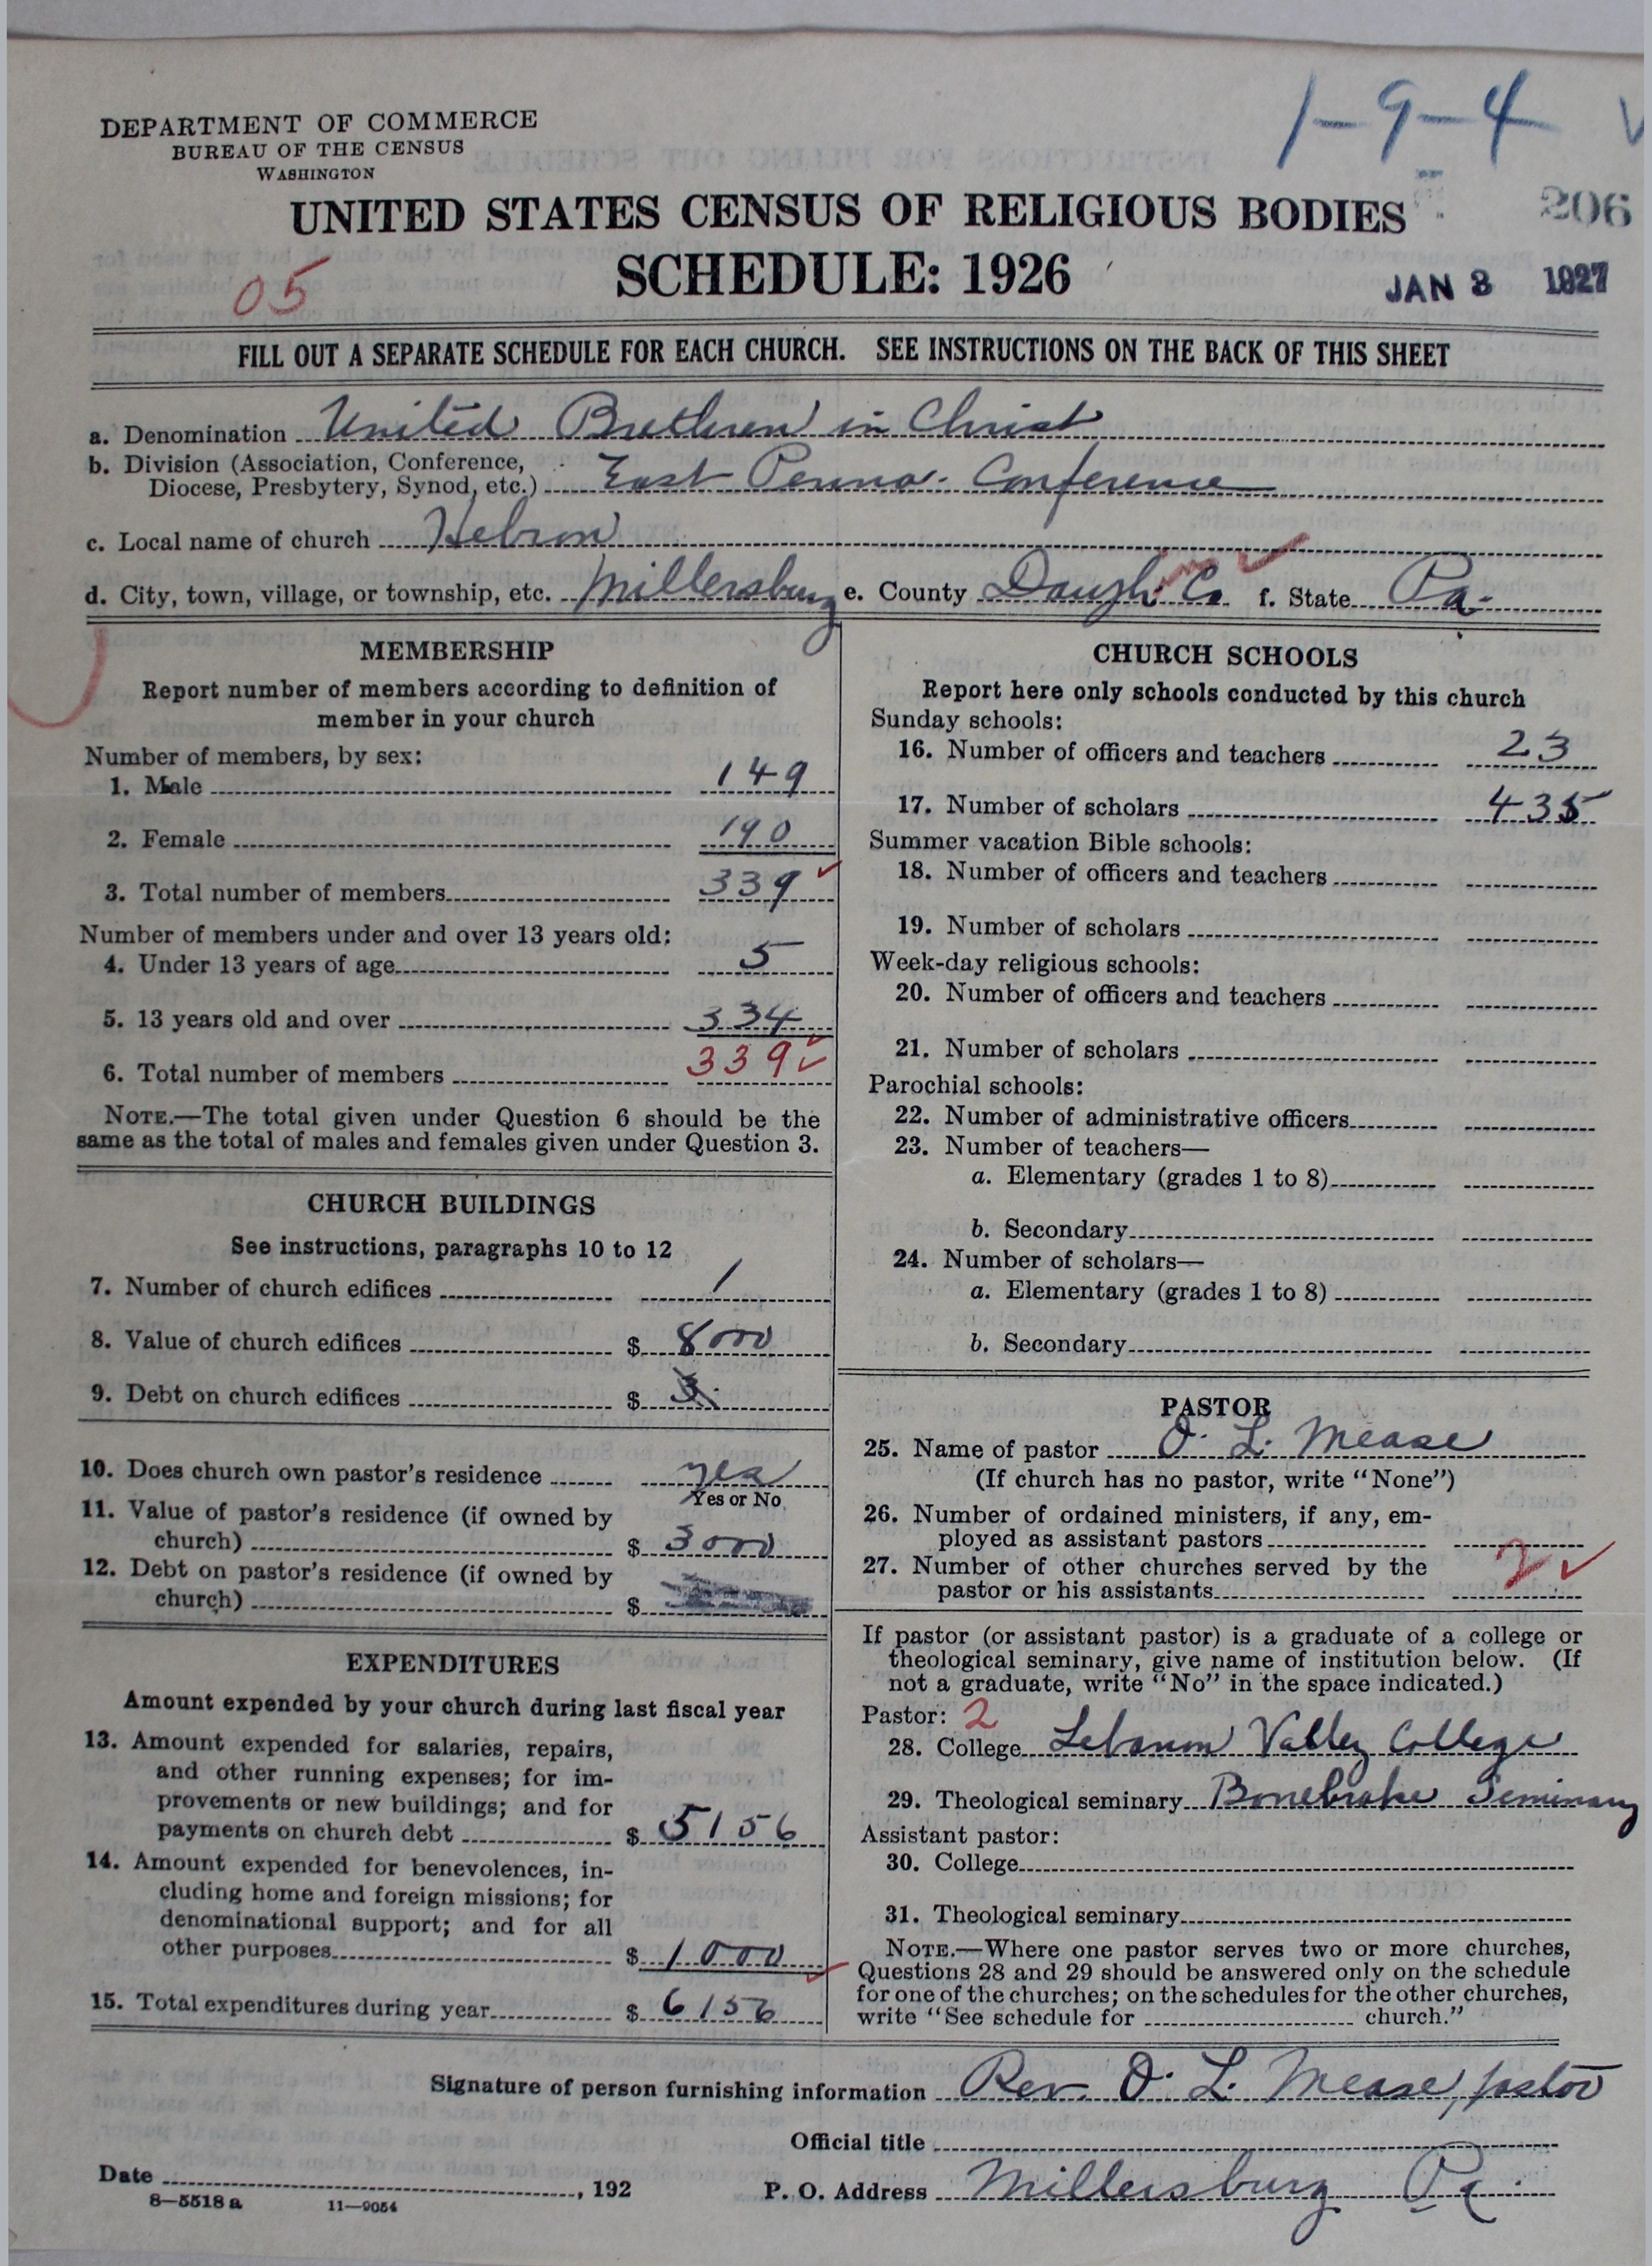 1-9-4
DEPARTMENT OF COMMERCE
BUREAU OF THE CENSUS
WASHINGTON
UNITED STATES CENSUS OF RELIGIOUS BODIES
206
SCHEDULE: 1926
05
JAN 3 1927
FILL OUT A SEPARATE SCHEDULE FOR EACH CHURCH. SEE INSTRUCTIONS ON THE BACK OF THIS SHEET
a. Denomination United Brethren in Christ
b. Division (Association, Conference,
Diocese, Presbytery, Synod, etc.) East Penna. Conference
c. Local name of church Hebron
d. City, town, village, or township, etc. Millersburg e. County Dauph. Co. f. State Pa.
MEMBERSHIP
Report number of members according to definition of
member in your church
Number of members, by sex:
1. Male 149
2. Female 190
3. Total number of members 339 ✓
Number of members under and over 13 years old:
4. Under 13 years of age 5
5. 13 years old and over 334
6. Total number of members 339 ✓
NOTE.—The total given under Question 6 should be the
same as the total of males and females given under Question 3.
CHURCH BUILDINGS
See instructions, paragraphs 10 to 12
7. Number of church edifices 1
8. Value of church edifices $ 8000
9. Debt on church edifices $
10. Does church own pastor's residence yes
Yes or No
11. Value of pastor's residence (if owned by
church) $ 3000
12. Debt on pastor's residence (if owned by
church) $
EXPENDITURES
Amount expended by your church during last fiscal year
13. Amount expended for salaries, repairs,
and other running expenses; for im-
provements or new buildings; and for
payments on church debt $ 5156
14. Amount expended for benevolences, in-
cluding home and foreign missions; for
denominational support; and for all
other purposes $ 1000
15. Total expenditures during year $ 6156
CHURCH SCHOOLS
Report here only schools conducted by this church
Sunday schools:
16. Number of officers and teachers 23
17. Number of scholars 435
Summer vacation Bible schools:
18. Number of officers and teachers
19. Number of scholars
Week-day religious schools:
20. Number of officers and teachers
21. Number of scholars
Parochial schools:
22. Number of administrative officers
23. Number of teachers—
a. Elementary (grades 1 to 8)
b. Secondary
24. Number of scholars—
a. Elementary (grades 1 to 8)
b. Secondary
PASTOR
25. Name of pastor O. L. Mease
(If church has no pastor, write "None")
26. Number of ordained ministers, if any, em-
ployed as assistant pastors
27. Number of other churches served by the
pastor or his assistants 2 ✓
If pastor (or assistant pastor) is a graduate of a college or
theological seminary, give name of institution below. (If
not a graduate, write "No" in the space indicated.)
Pastor: 2
28. College Lebanon Valley College
29. Theological seminary Bonebrake Seminary
Assistant pastor:
30. College
31. Theological seminary
NOTE.—Where one pastor serves two or more churches,
Questions 28 and 29 should be answered only on the schedule
for one of the churches; on the schedules for the other churches,
write "See schedule for church."
Signature of person furnishing information Rev. O. L. Mease, pastor
Official title
Date , 192
P. O. Address Millersburg Pa.
8—5518 a 11—9054